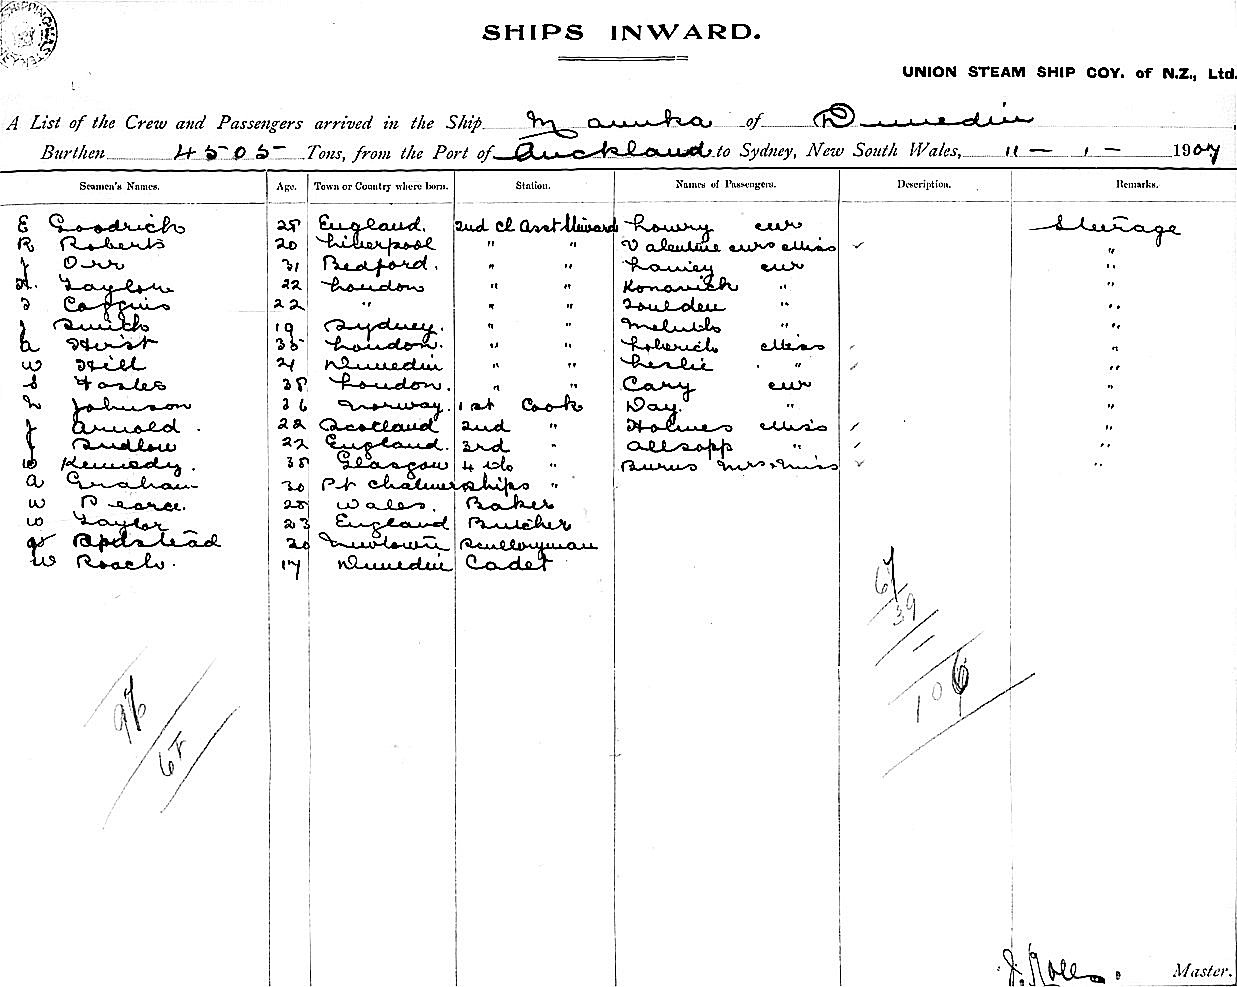 SHIPS INWARD.
UNION STEAM SHIP COY. of N.Z., Ltd.
A List of the Crew and Passengers arrived in the Ship Manuka of Dunedin
Burthen 4505 Tons, from the Port of Auckland to Sydney, New South Wales, 11 - 1 - 1907
Seamen's Names. Age. Town or Country where born. Station. Names of Passengers. Description. Remarks.
E Goodrich 25 England. 2nd Cl Asst Steward Lowry mr Steerage
R Roberts 20 Liverpool " " Valentine mrs miss "
J Orr 31 Bedford. " " mr "
H. Taylor 22 London " " "  "
22 " " " " "
J Smith 19 Sydney. " " " "
A Hirst 35 London. " " miss "
W Hill 21 Dunedin " " Leslie " "
S 38 London. " " Cary mr "
Johnson 36 Norway. 1st Cook Day. " "
J Arnold. 22 Scotland 2nd " Holmes miss "
J Budlow 22 England. 3rd " Allsopp " "
W Kennedy. 38 Glasgow 4 do " Burns Mrs & Miss "
A Graham 30 Pt Chalmers Ships "
W Pearce. 28 Wales. Baker
W Taylor 23 England Butcher
20 Newtown Sculleryman
W Roach. 17 Dunedin Cadet
67
39
106
J. Rolls. Master.